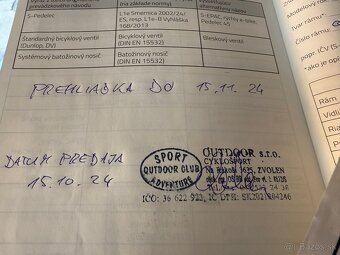 prevádzkového návodu
(na základe normy)
alternatívny názov
S-Pedelec
L1e Smernica 2002/24/
ES, resp. L1e-B Vyhláška
168/2013
S-EPAC, rýchly e-bike,
Pedelec
Štandardný bicyklový ventil
(Dunlop, DV)
Bicyklový ventil
(DIN EN 15532)
Bleskový ventil
Systémový batožinový nosič
Batožinový nosič
(DIN EN 15532)
Modelový rok
Tvar rámu
Číslo rámu:
popr. IČV (S
*ako je opís
Rám
Vidli
PREHLIADKA DO 15.11.24
DATUM PREDAJA
15.10.24
SPORT
OUTDOOR CLUB
ADVENTURE
OUTDOOR s.r.o.
CYKLOŠPORT
ZVOLEN
IČO: 36 622 923, IČ DPH:
bazos.sk